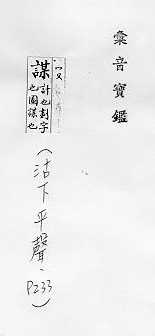 彙音寶鑑
謀
計也劃字
也圖謀也
(沽下平聲、P233)